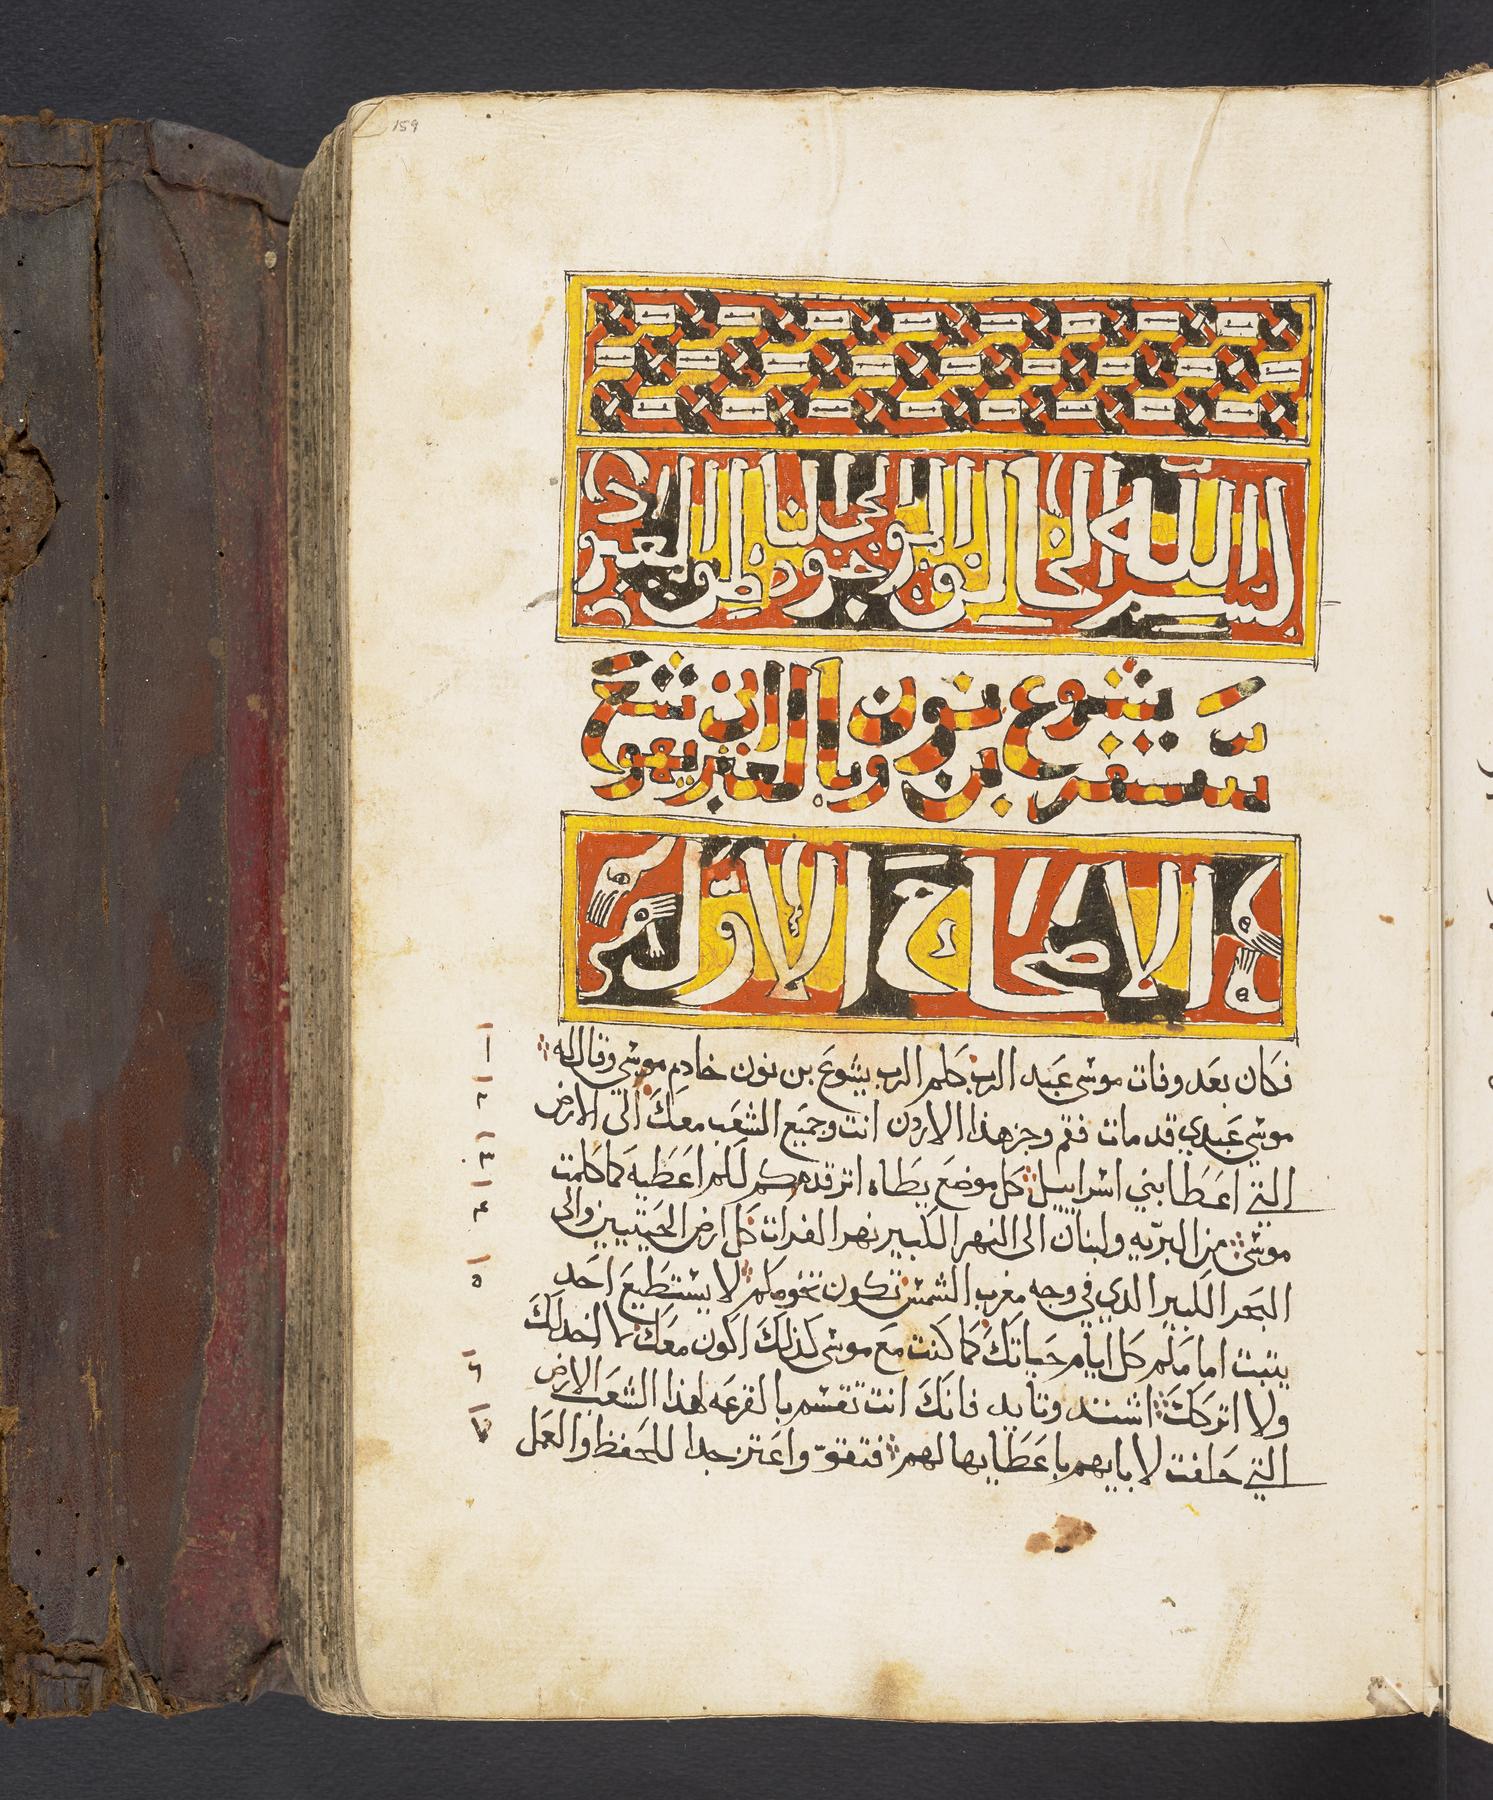 159
بسم الله الخالق الحي الناطق
سفر يشوع بن نون وبالعبري يهوشع ابن
الاصحاح الاول
فكان بعد وفات موسى عبد الرب كلم الرب يشوع بن نون خادم موسى وقال له
١
موسى عبدي قد مات فقم وجز هذا الاردن انت وجميع الشعب معك الى الارض
٢
التي اعطا بني اسراييل كل موضع يطاه اتر قدمكم لكم اعطيه كما كلمت
٣
موسى من البريه ولبنان الى النهر الكبير نهر الفرات كل ارض الحيثيين والى
٤
البحر الكبير الدي في وجه مغرب الشمس تكون تخومكم لا يستطيع احد
٥
يتبت امامكم كل ايام حياتك كما كنت مع موسى كذلك اكون معك لا اخدلك
ولا اتركك اشتد وتايد فانك انت تقسم بالقرعه لهذا الشعب الارض
٦
التي حلفت لابايهم باعطايها لهم فتقو واعتز جدا للحفظ والعمل
٧